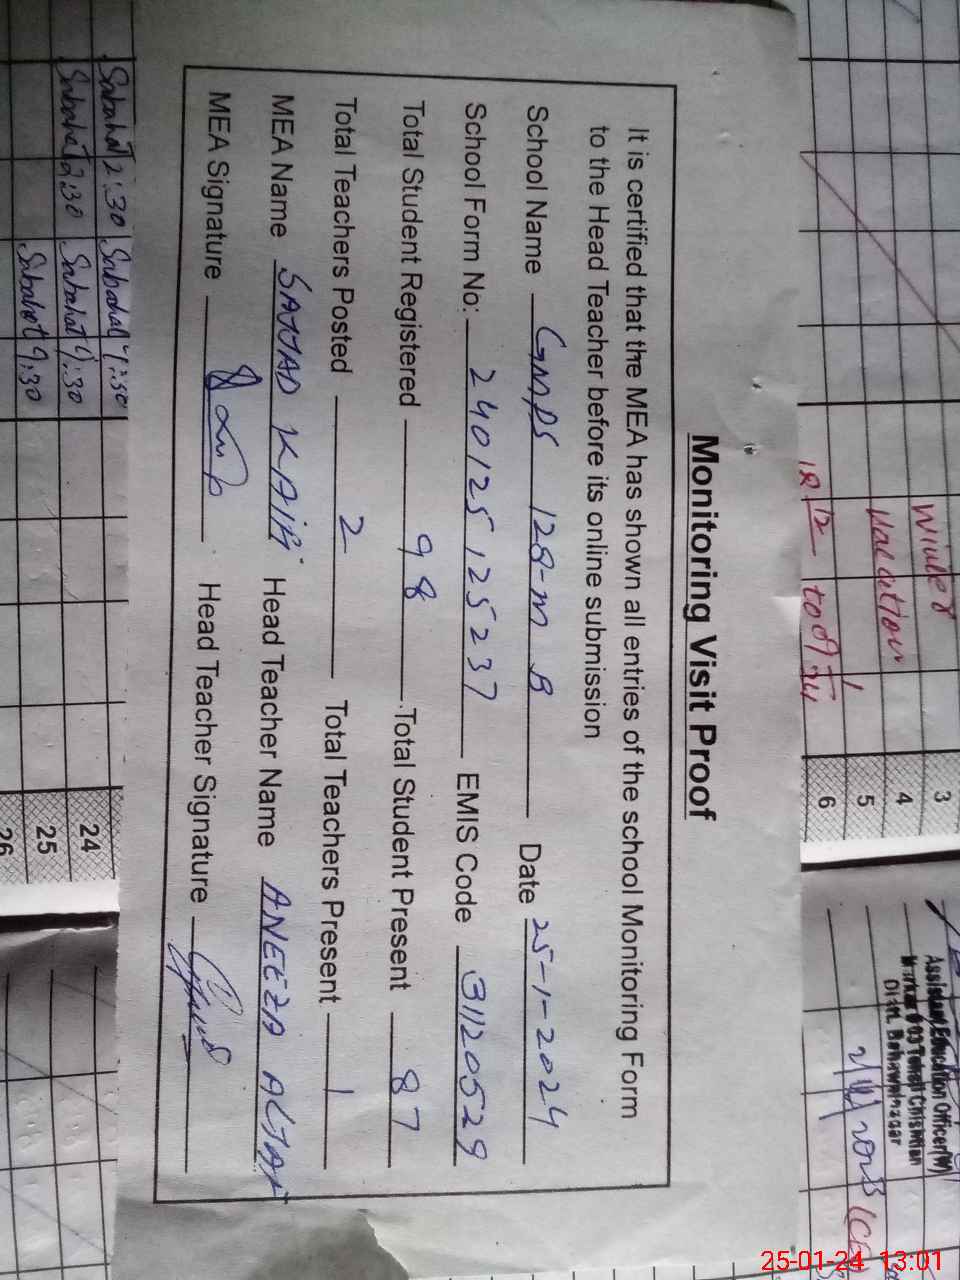 Monitoring Visit Proof
It is certified that the MEA has shown all entries of the school Monitoring Form
to the Head Teacher before its online submission
School Name GMPS 128-M B Date 25-1-2024
School Form No: 24012512537 EMIS Code 31120529
Total Student Registered 98 Total Student Present 87
Total Teachers Posted 2 Total Teachers Present 1
MEA Name SAJJAD KAIR Head Teacher Name ANEEZA ALTAF
MEA Signature Head Teacher Signature
Winter
Vacation
18-12 to
3
4
5
6
Assistant Education Officer(W)
Markaz # 03 Tehsil Chishtian
Distt. Bahawalnagar
Sabahat 2:30 Sabahat 9:30
Sabahat 2:30 Sabahat 9:30
Sabahat 9:30
24
25
26
25-01-24 13:01